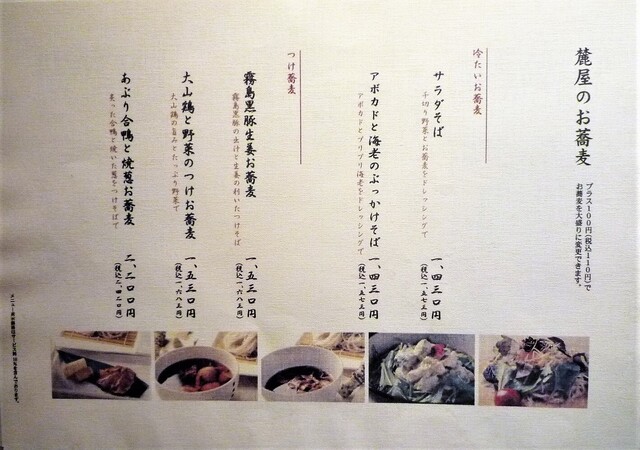 麓屋のお蕎麦
プラス100円(税込110円)で
お蕎麦を大盛りに変更できます。
冷たいお蕎麦
サラダそば
千切り野菜とお蕎麦をドレッシングで
一、四三〇円
(税込一、五七三円)
アボカドと海老のぶっかけそば
アボカドとプリプリ海老をドレッシングで
一、四三〇円
(税込一、五七三円)
つけ蕎麦
霧島黒豚生姜お蕎麦
霧島黒豚の出汁と生姜の利いたつけそば
一、五三〇円
(税込一、六八三円)
大山鶏と野菜のつけお蕎麦
大山鶏の旨みとたっぷり野菜で
一、五三〇円
(税込一、六八三円)
あぶり合鴨と焼葱お蕎麦
炙った合鴨と焼いた葱をつけそばで
二、二〇〇円
(税込二、四二〇円)